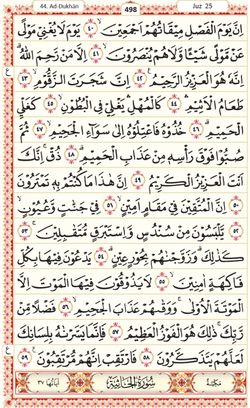 44. Ad-Dukhân 498 Juz 25
إِنَّ يَوْمَ الْفَصْلِ مِيقَاتُهُمْ أَجْمَعِينَ ٤٠ يَوْمَ لَا يُغْنِي مَوْلًى
عَنْ مَوْلًى شَيْئًا وَلَا هُمْ يُنْصَرُونَ ٤١ إِلَّا مَنْ رَحِمَ اللَّهُ
إِنَّهُ هُوَ الْعَزِيزُ الرَّحِيمُ ٤٢ إِنَّ شَجَرَتَ الزَّقُّومِ ٤٣
طَعَامُ الْأَثِيمِ ٤٤ كَالْمُهْلِ يَغْلِي فِي الْبُطُونِ ٤٥ كَغَلْيِ
الْحَمِيمِ ٤٦ خُذُوهُ فَاعْتِلُوهُ إِلَى سَوَاءِ الْجَحِيمِ ٤٧ ثُمَّ
صُبُّوا فَوْقَ رَأْسِهِ مِنْ عَذَابِ الْحَمِيمِ ٤٨ ذُقْ إِنَّكَ
أَنْتَ الْعَزِيزُ الْكَرِيمُ ٤٩ إِنَّ هَذَا مَا كُنْتُمْ بِهِ تَمْتَرُونَ
٥٠ إِنَّ الْمُتَّقِينَ فِي مَقَامٍ أَمِينٍ ٥١ فِي جَنَّاتٍ وَعُيُونٍ
٥٢ يَلْبَسُونَ مِنْ سُنْدُسٍ وَإِسْتَبْرَقٍ مُتَقَابِلِينَ ٥٣
كَذَلِكَ وَزَوَّجْنَاهُمْ بِحُورٍ عِينٍ ٥٤ يَدْعُونَ فِيهَا بِكُلِّ
فَاكِهَةٍ آمِنِينَ ٥٥ لَا يَذُوقُونَ فِيهَا الْمَوْتَ إِلَّا
الْمَوْتَةَ الْأُولَى وَوَقَاهُمْ عَذَابَ الْجَحِيمِ ٥٦ فَضْلًا مِنْ
رَبِّكَ ذَلِكَ هُوَ الْفَوْزُ الْعَظِيمُ ٥٧ فَإِنَّمَا يَسَّرْنَاهُ بِلِسَانِكَ
لَعَلَّهُمْ يَتَذَكَّرُونَ ٥٨ فَارْتَقِبْ إِنَّهُمْ مُرْتَقِبُونَ ٥٩
مَكِّيَّة سُورَةُ الْجَاثِيَةِ آيَاتُهَا ٣٧